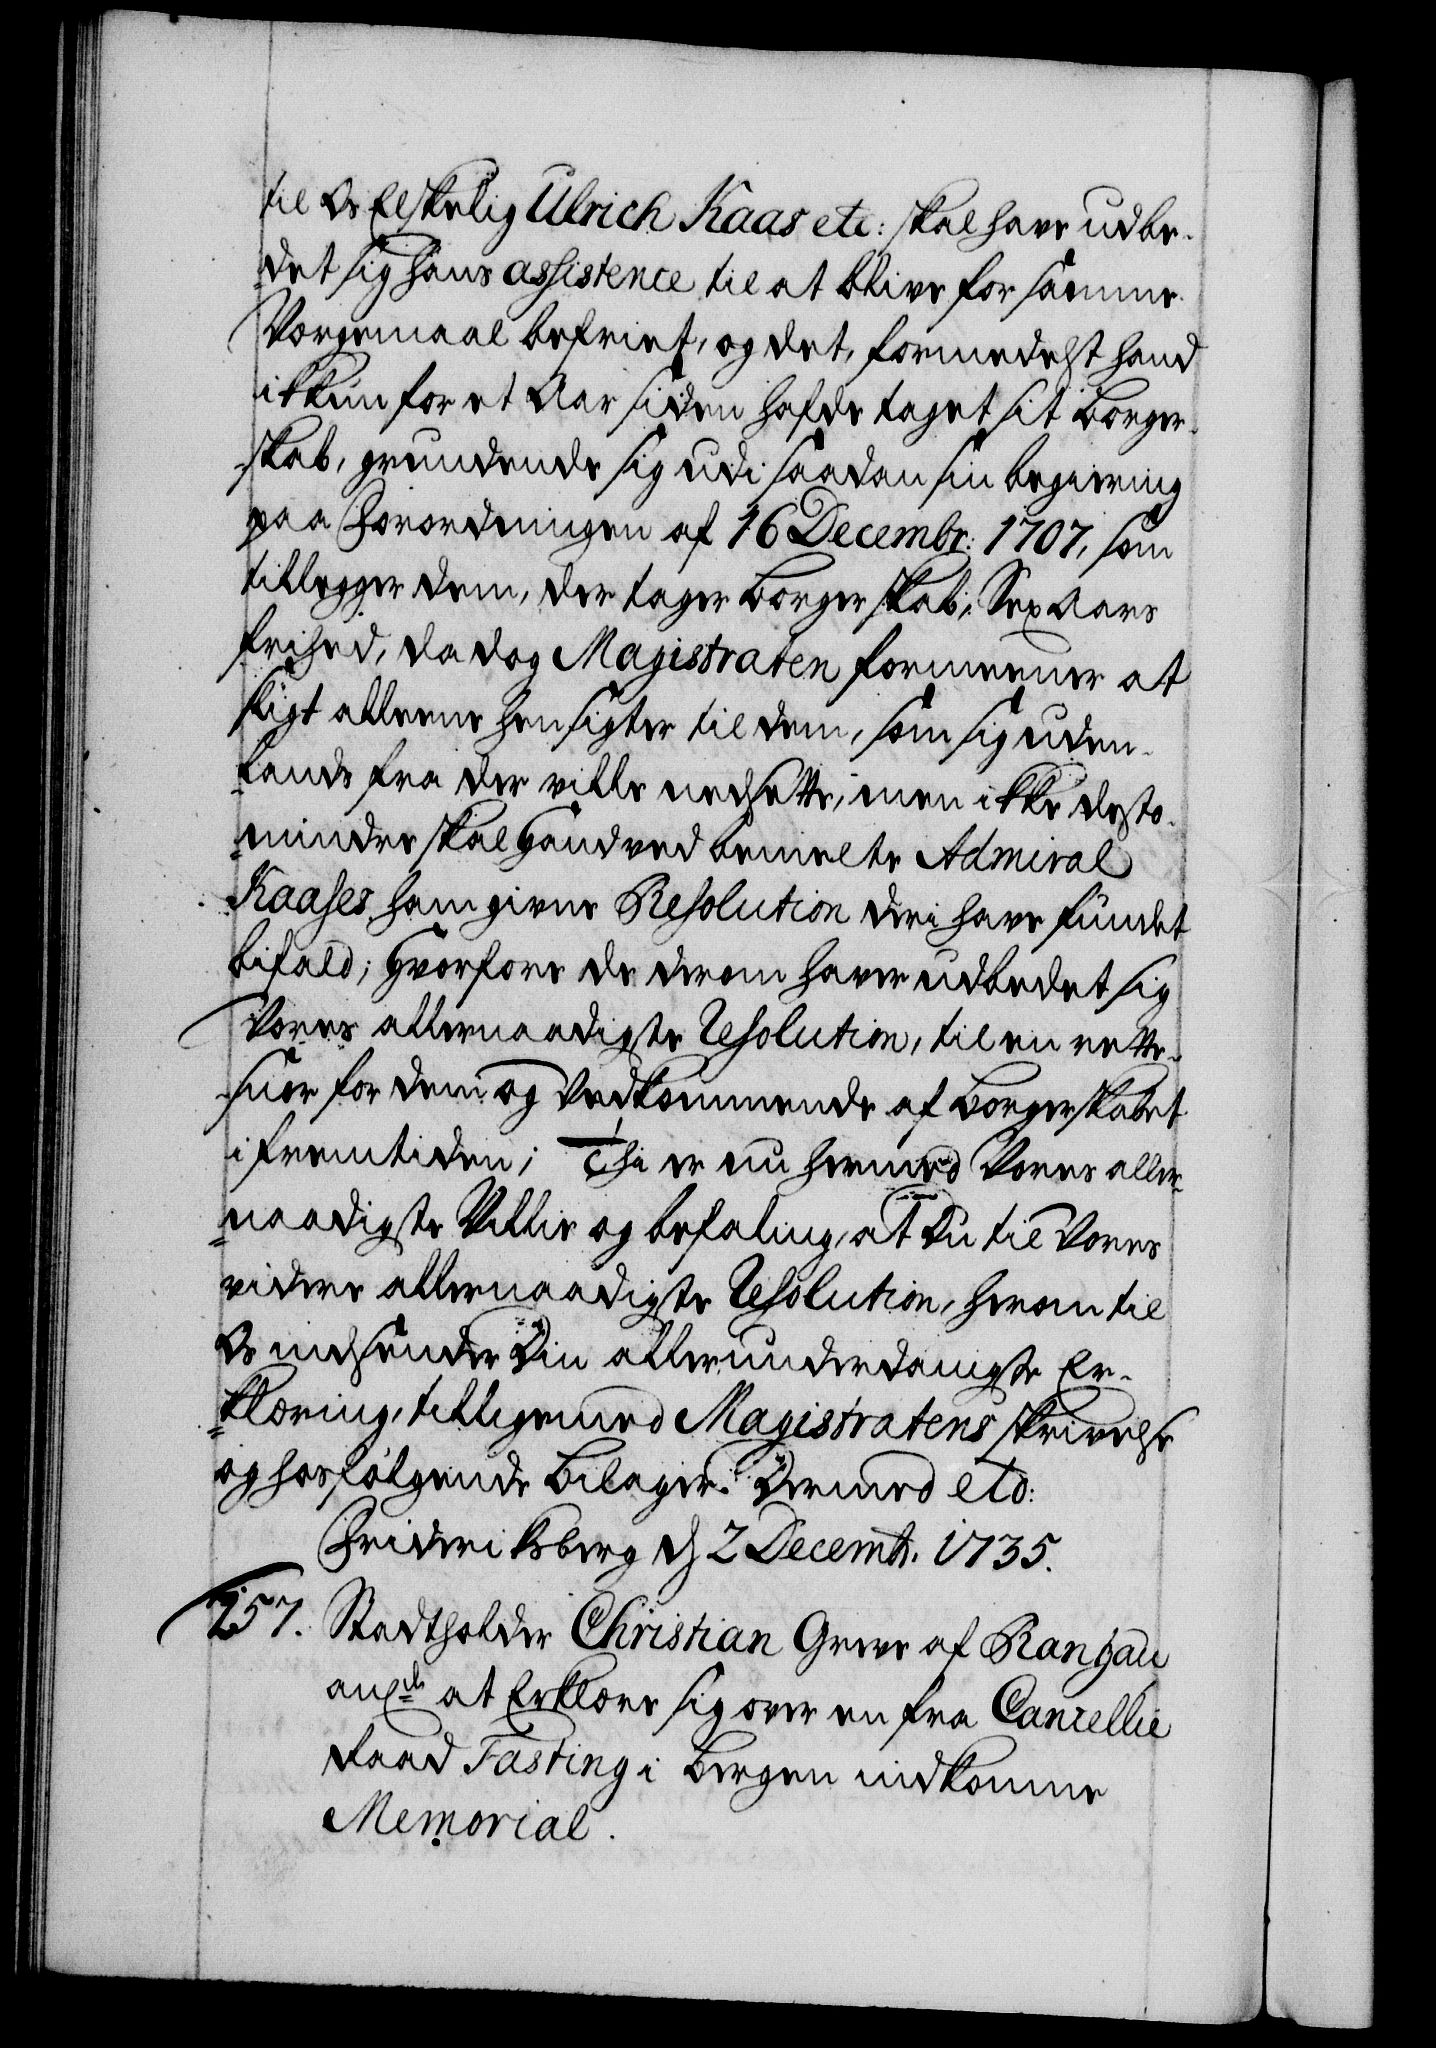 til Os Elskelig Ulrich Kaas etc: skal have udbe-
-det sig hans assistence til at blive for samme
Vorgemaal befriet, og det, formedelst hand
ikkun for et Aar siden hafde taget sit Borger-
-skab, grundende sig udi saadan sin begiering
paa Forordningen af 16 Decembr: 1707, som
tillegger dem, der tager Borgerskab, Sex Aars
frihed, da dog Magistraten formeener at
sligt alleene hensigter til dem, som sig uden-
-lands fra der ville nedsette, men ikke desto-
-mindre skal hand ved bemelte Admiral
Kaases ham givne Resolution deri have fundet
bifald; hvorfore de derom haver udbedet sig
Vores allernaadigste Resolution, til en rette-
-snor for dem og Vedkommende af Borgerskabet
i fremtiden; Thi er nu hermed Vores aller-
-naadigste Villie og befaling, at Du til Vores
videre allernaadigste Resolution, herom til
Os indsender Din allerunderdanigste Er-
-klæring, tilligemed Magistratens skrivelse
og hosfølgende Bilager. Dermed etc:
Frideriksberg d 2 Decembr. 1735.
257. Stadtholder Christian Greve af Rantzau
anl at Erklære sig over en fra Cancellie
Raad Fasting i Bergen indkomne
Memorial.